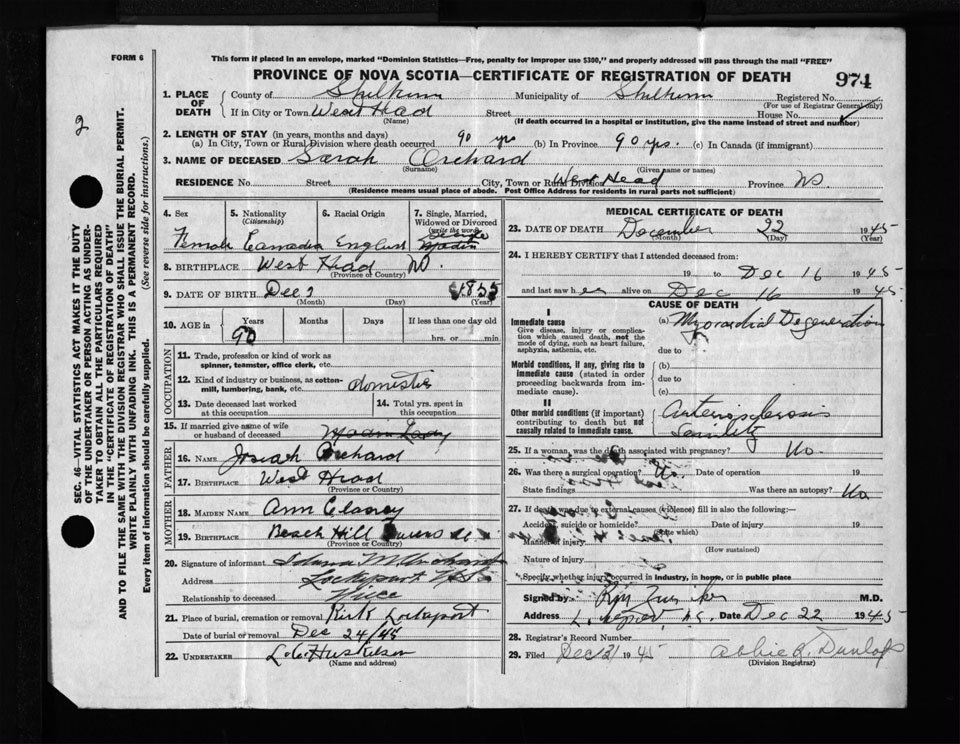 FORM 6
This form if placed in an envelope, marked "Dominion Statistics—Free, penalty for improper use $300," and properly addressed will pass through the mail "FREE"
PROVINCE OF NOVA SCOTIA—CERTIFICATE OF REGISTRATION OF DEATH
974
2
SEC. 46—VITAL STATISTICS ACT MAKES IT THE DUTY
OF THE UNDERTAKER OR PERSON ACTING AS UNDER-
TAKER TO OBTAIN ALL THE PARTICULARS REQUIRED
IN THE "CERTIFICATE OF REGISTRATION OF DEATH"
AND TO FILE THE SAME WITH THE DIVISION REGISTRAR WHO SHALL ISSUE THE BURIAL PERMIT.
WRITE PLAINLY WITH UNFADING INK. THIS IS A PERMANENT RECORD.
Every item of information should be carefully supplied. (See reverse side for instructions.)
1. PLACE OF DEATH
County of Municipality of Registered No.
(For use of Registrar General only)
If in City or Town West Head Street House No.
(Name) (If death occurred in a hospital or institution, give the name instead of street and number)
2. LENGTH OF STAY (in years, months and days)
(a) In City, Town or Rural Division where death occurred 90 yrs (b) In Province 90 yrs. (c) In Canada (if immigrant)
3. NAME OF DECEASED Sarah Orchard
(Surname) (Given name or names)
RESIDENCE No. Street City, Town or Rural Division West Head Province NS
(Residence means usual place of abode. Post Office Address for residents in rural parts not sufficient)
4. Sex 5. Nationality (Citizenship) 6. Racial Origin 7. Single, Married, Widowed or Divorced (write the word)
Female Canadian English Single
8. BIRTHPLACE West Head NS.
(Province or Country)
9. DATE OF BIRTH Dec 1855
(Month) (Day) (Year)
10. AGE in Years Months Days If less than one day old
90 hrs. or min.
OCCUPATION
11. Trade, profession or kind of work as
spinner, teamster, office clerk, etc.
12. Kind of industry or business, as cotton-
mill, lumbering, bank, etc. domestic
13. Date deceased last worked
at this occupation
14. Total yrs. spent in
this occupation
15. If married give name of wife
or husband of deceased
FATHER
16. NAME Josiah Orchard
17. BIRTHPLACE West Head
MOTHER
18. MAIDEN NAME Ann Clancy
19. BIRTHPLACE Beach Hill
(Province or Country)
20. Signature of informant
Address Lockeport NS
Relationship to deceased Niece
21. Place of burial, cremation or removal Kirk Lockeport
Date of burial or removal Dec 24/45
22. UNDERTAKER L.C. Huskilson
(Name and address)
MEDICAL CERTIFICATE OF DEATH
23. DATE OF DEATH December 22 1945
(Month) (Day) (Year)
24. I HEREBY CERTIFY that I attended deceased from:
19 to Dec 16 1945
and last saw her alive on Dec 16 1945
CAUSE OF DEATH
I
Immediate cause
Give disease, injury or complica-
tion which caused death, not the
mode of dying, such as heart failure,
asphyxia, asthenia, etc.
(a) Myocardial Degeneration
due to
Morbid conditions, if any, giving rise to
immediate cause (stated in order
proceeding backwards from im-
mediate cause).
(b)
due to
(c)
II
Other morbid conditions (if important)
contributing to death but not
causally related to immediate cause.
Arteriosclerosis
Senility
25. If a woman, was the death associated with pregnancy? No.
26. Was there a surgical operation? No. Date of operation 19
State findings Was there an autopsy? No
27. If death was due to external causes (violence) fill in also the following:—
Accident, suicide or homicide? Date of injury 19
(State which)
Manner of injury
(How sustained)
Nature of injury
Specify whether injury occurred in industry, in home, or in public place
Signed by M.D.
Address Date Dec 22 1945
28. Registrar's Record Number
29. Filed Dec 31 1945 Abbie Dunlop
(Division Registrar)